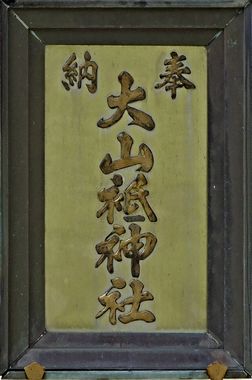 奉納
大山祇神社